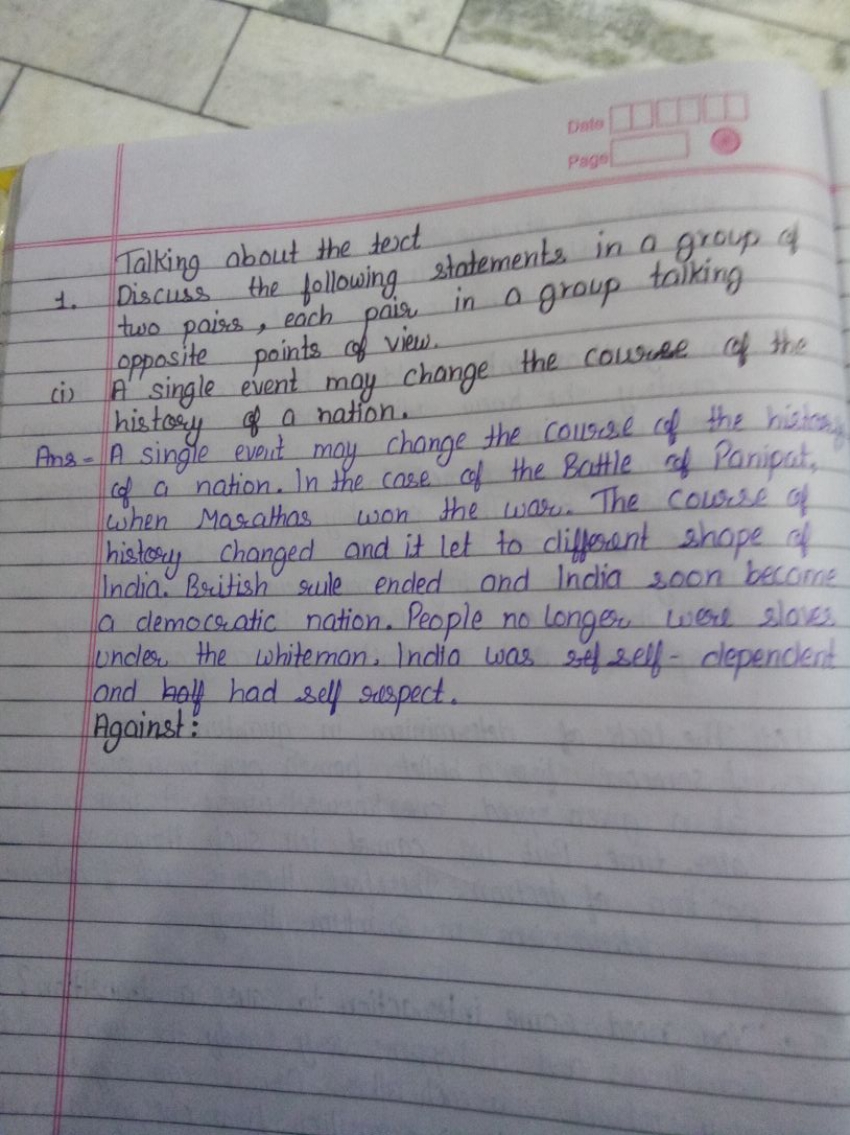 Date
Page
Talking about the text
1. Discuss the following statements in a group of
two pairs, each pair in a group talking
opposite points of view.
(i) A single event may change the course of the
history of a nation.
Ans - A single event may change the course of the history
of a nation. In the case of the Battle of Panipat,
when Marathas won the war. The course of
history changed and it let to different shape of
India. British rule ended and India soon became
a democratic nation. People no longer were slaves
under the whiteman. India was sef self - dependent
and half had self respect.
Against: